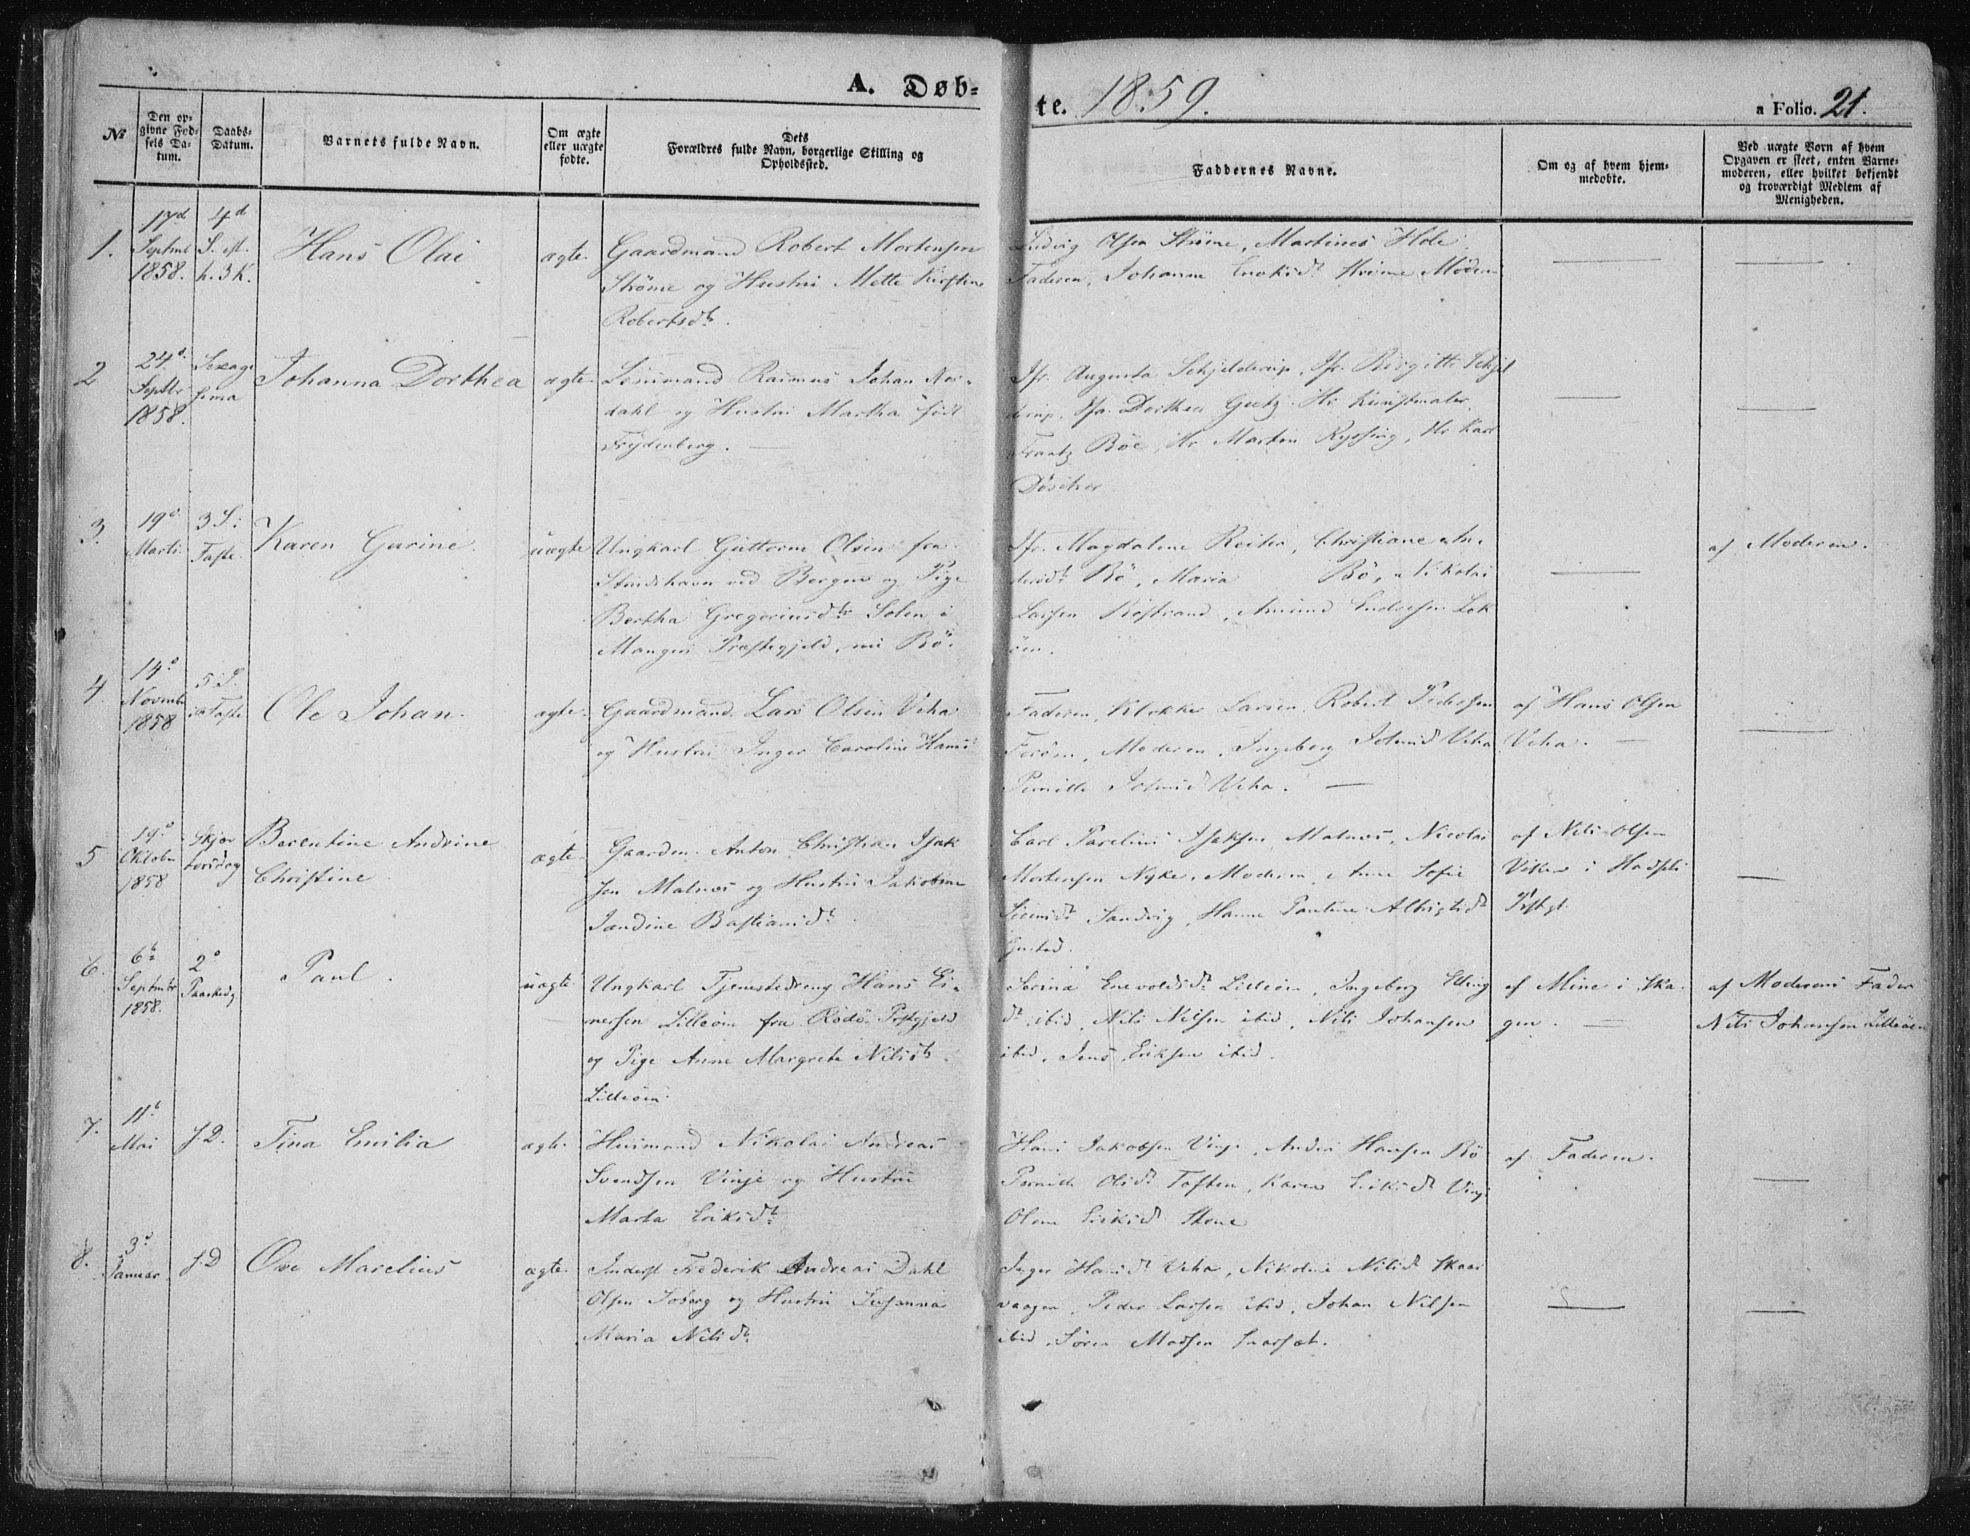 A. Døb-
te. 1859.
a Folio. 21.
No
Den op-
givne Fød-
sels Da-
tum.
Daabs-
Datum.
Barnets fulde Navn.
Om ægte
eller uægte
fødte.
Dets
Forældres fulde Navn, borgerlige Stilling og
Opholdssted.
Faddernes Navne.
Om og af hvem hjem-
medøbte.
Ved uægte Børn af hvem
Opgaven er skeet, enten Barne-
moderen, eller hvilket bekjendt
og troværdigt Medlem af
Menigheden.
1.
17d
Septmb
1858.
4d
S. ef.
h. 3 K.
Hans Olai
ægte.
Gaardmand Robert Mortensen
Strøme og Hustru Mette Kirstine
Robertsdt.
Ludvig Olsen Strøme, Martines Hole
Faderen, Johanne Enoksdt Moderen
2
24d.
Septbr
1858.
Sexage
sima
Johanna Dorthea
ægte.
Lensmand Rasmus Johan Nor-
dahl og Hustru Martha født
Frydenberg.
Jfr. Augusta Schjelderup, Jfr. Birgitte Schjel
derup, Jfr. Dorthea Gretz, Hr. Kunstmaler
Frantz Bøe, Hr Morten Ryssing, Hr Karl
3.
19d.
Marts.
3 S. i
Faste.
Karen Gurine.
uægte
Ungkarl Guttorm Olsen fra
ved Bergen og Pige
Bertha Gregoriusdtr Solen i
Mangers Præstegjeld, nu Bö.
Jfr. Magdalene Reiter, Christiane An-
dersdt Bö, Maria Bö, Nikolai
Larsen Röstrand, Amund Endresen Lok
öen.
af Moderen.
4.
14d
Novmbr
1858
5 S.
i Faste
Ole Johan.
ægte.
Gaardmand Lars Olsen Veha
og Hustru Inger Caroline Hans
Faderen, Klokker Larsen, Robert Pedersen
Moderen, Ingeborg Johnsdt Veha
Pernille Johnsdt Veha.
af Hans Olsen
Veha.
5
19d
Oktobr
1858
Skjær
torsdag
Berentine Andrine
Christine
ægte
Gaardm. Anton Christian Isak
sen Malnes og Hustru Jakobine
Jandine Bastiansdt.
Carl Parelius Isaksen Malnes, Nicolai
Mortensen Nyke, Moderen, Anne Sofie
Sivertsdt Sandvig, Hanne Pauline Albrigtsdt
af Nils Olsen
Viken i Hadsels
Pstgj.
6.
6te
Septmbr
1858.
2d
Paaskedg
Paul.
uægte
Ungkarl Tjenestedreng Hans Ei-
nersen Lilleöen fra Rödö Prstgjeld
og Pige Anne Margrete Nilsdt.
Lilleöen
Serina Enevoldsdt Lilleöen, Ingeborg Elling
dt. ibid, Nils Nilsen ibid, Nils Johansen
ibid, Jens Eriksen ibid.
af Mine i Ska-
gen.
af Moderens Fader
Nils Johansen Lilleöen
7.
11te
Mai
s. D.
Tina Emilia
ægte.
Huusmand Nikolai Andreas
Svendsen Vinje og Hustru
Marta Eriksdt.
Hans Jakobsen Vinje, Anders Hansen Bö
Pernille Olsdt Toften, Karen Eriksdt Vinj
Olava Eriksdt Steine
af Faderen.
8.
3d
Januar
s. D
Ove Marelius
ægte.
Inderst Frederik Andreas Dahl
Olsen Soberg og Hustru Susanna
Maria Nilsdt.
Inger Hansdt Veha, Nikoline Nilsdt Skaar
vaagen, Peder Larsen ibid, Johan Nilsen
ibid, Sören Madsen Snarset.